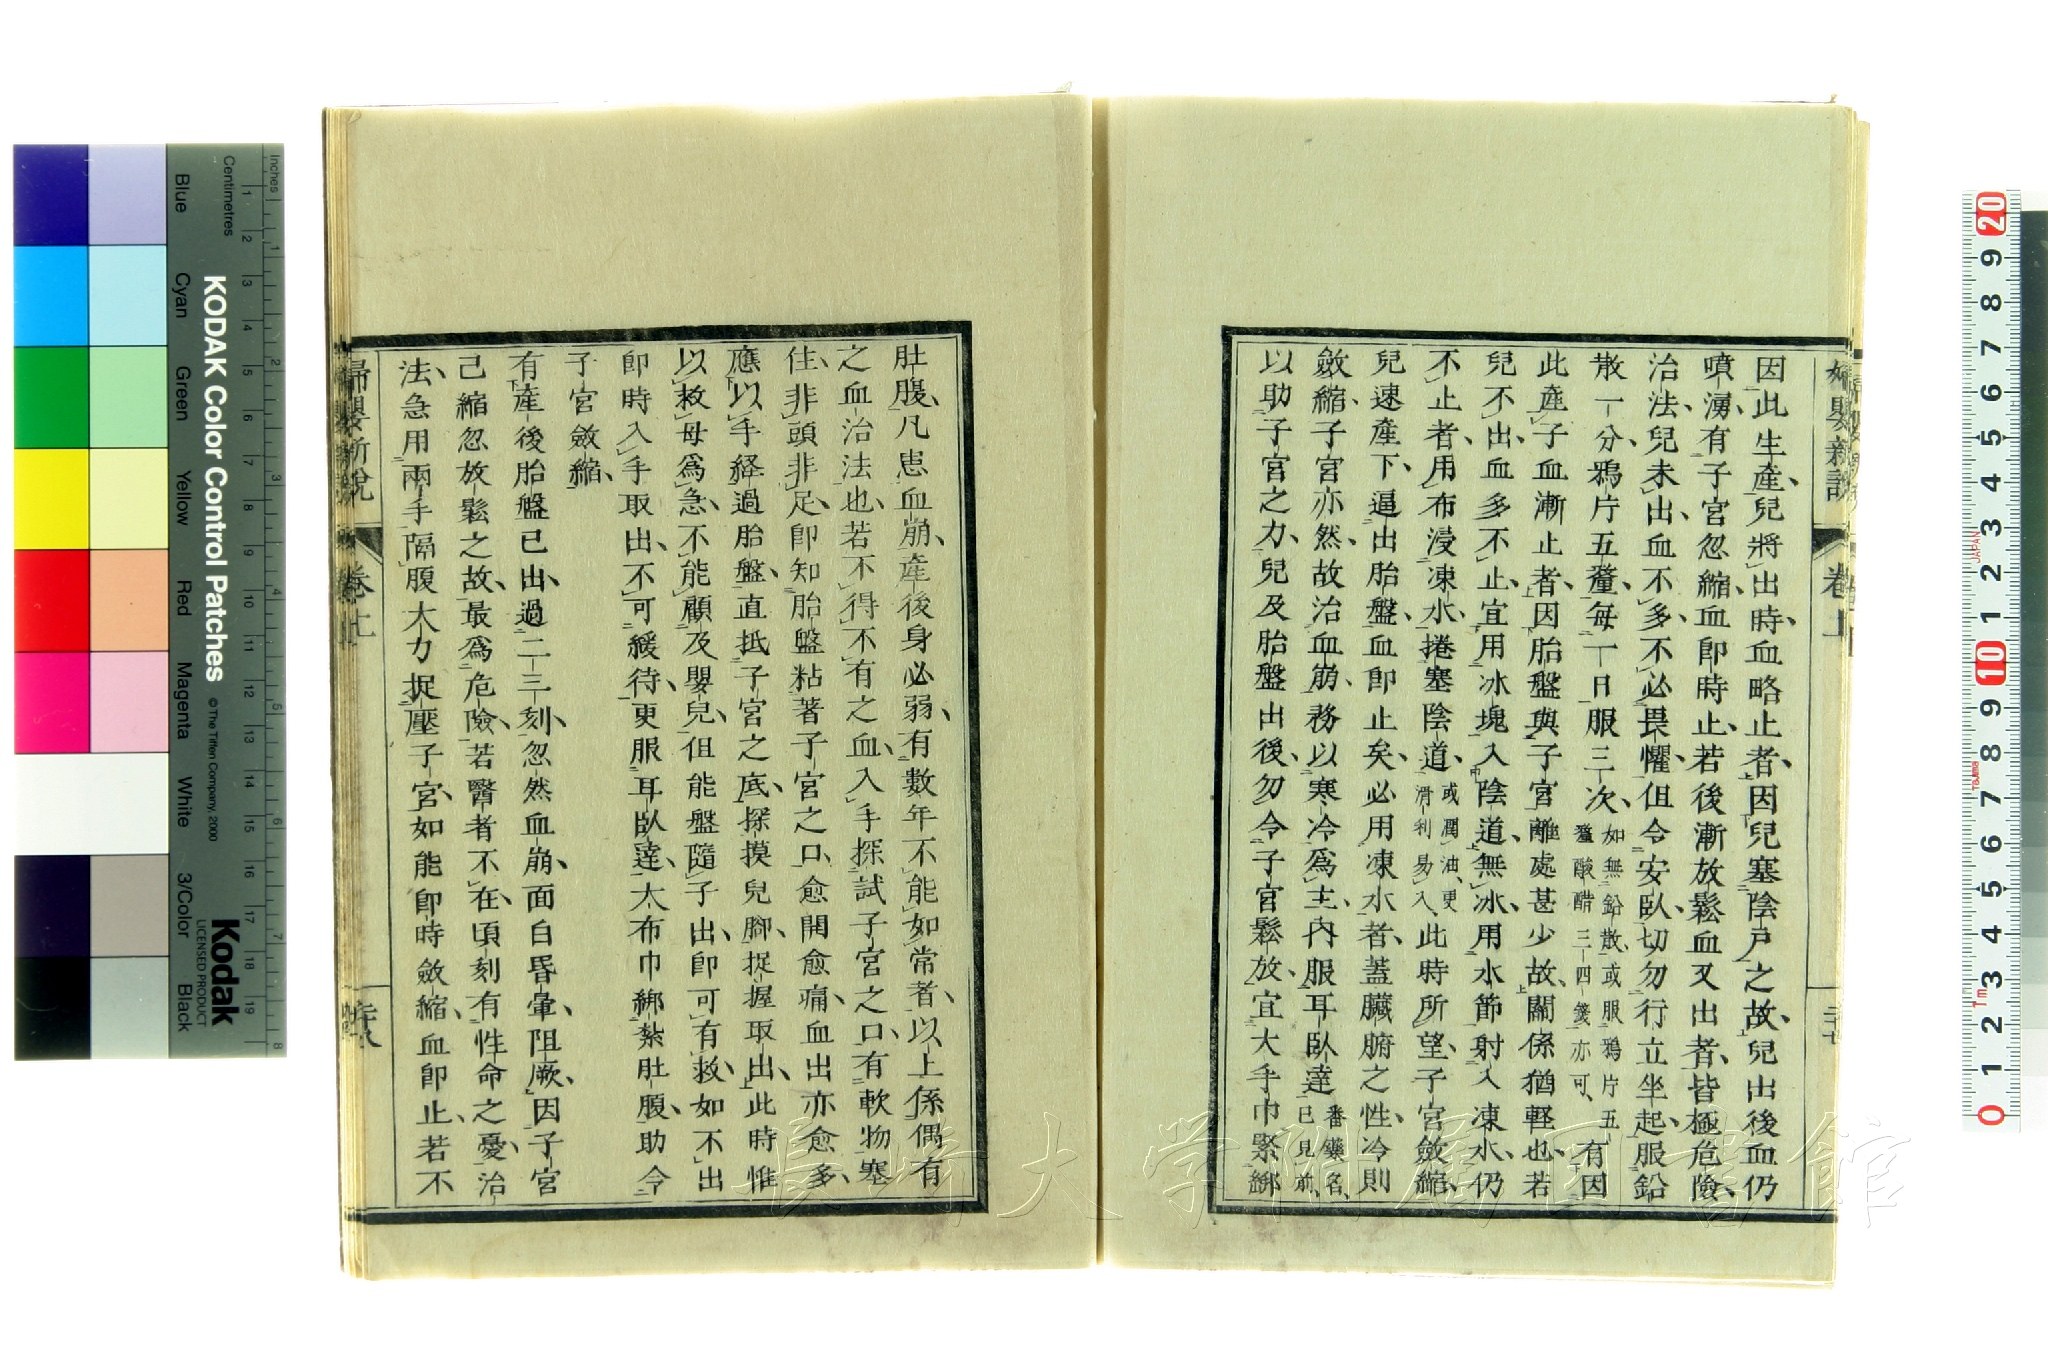 因此生產、兒將出時、血略止者、因兒塞陰戶之故、兒出後血仍
噴湧、有子宮忽縮血即時止、若後漸放鬆血又出者、皆極危險、
治法、兒未出血不多、不必畏懼、伹令安臥、切勿行立坐起、服鉛
散一分、鴉片五釐、每一日服三次、如無鉛散、或服鴉片五
釐酸醋三四箋亦可、有因
此產子血漸止者、因胎盤與子宮離處甚少故、關係猶輕也、若
兒不出、血多不止、宜用冰塊入陰道、無冰、用水節射入凍水、仍
不止者、用布浸凍水、捲塞陰道、或潤油、更
滑利易入、此時所望、子宮斂縮、
兒速產下、逼出胎盤、血即止矣、必用凍水者、蓋臟腑之性、冷則
斂縮、子宮亦然、故治血崩、務以寒冷爲主、內服耳臥達番藥名、
已見前、
以助子宮之力、兒及胎盤出後、勿令子宮鬆放、宜大手巾緊綁
婦嬰新說
卷上
三十七
肚腹、凡患血崩、產後身必弱、有數年不能如常者、以上係偶有
之血治法也、若不得不有之血、入手探試子宮之口、有軟物塞
住、非頭非足、即知胎盤粘著子宮之口、愈開愈痛、血出亦愈多、
應以手経過胎盤、直抵子宮之底、探摸兒腳、捉握取出、此時惟
以救母爲急、不能顧及嬰兒、伹能盤隨子出、即可有救、如不出
即時入手取出、不可緩待、更服耳臥達、大布巾綁紮肚腹、助令
子宮斂縮、
有產後胎盤已出、過二三刻、忽然血崩、面白昏暈、阻厥、因子宮
己縮忽放鬆之故、最爲危險、若醫者不在、頃刻有性命之憂、治
法、急用兩手隔腹大力捉壓子宮、如能即時斂縮、血即止、若不
婦嬰新說
卷上
三十八
KODAK Color Control Patches
© The Tiffen Company, 2000
Kodak
LICENSED PRODUCT
Inches
Centimetres
Blue
Cyan
Green
Yellow
Red
Magenta
White
3/Color
Black
長崎大学附属図書館